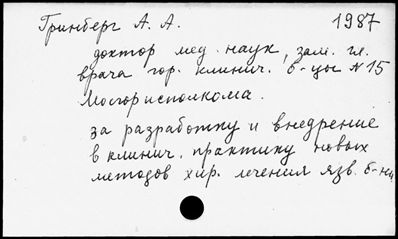 Гринберг А. А. 1987
доктор мед. наук, зам. гл.
врача гор. клинич. б-цы №15
Мосгорисполкома.
за разработку и внедрение
в клинич. практику новых
методов хир. лечения язв. б-ни